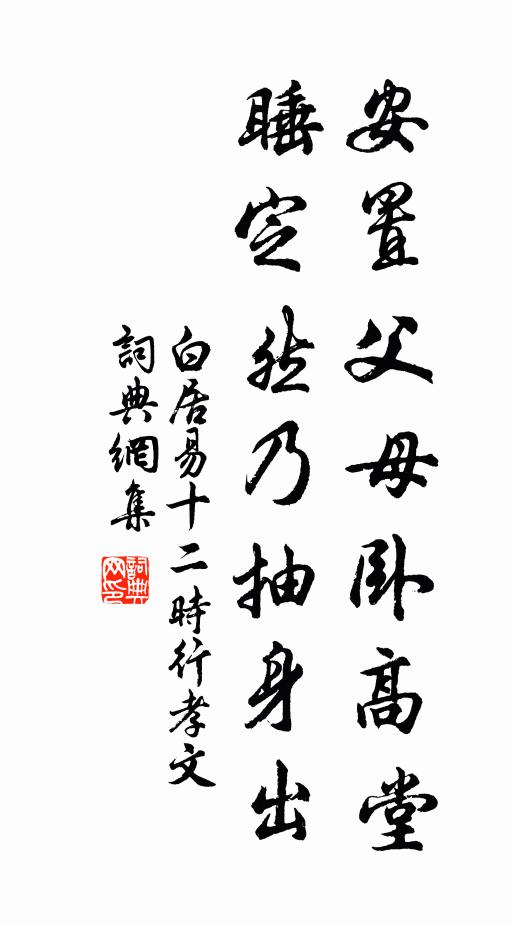 安置父母卧高堂
睡定然乃抽身出
白居易十二時行孝文
詞典網集
詞典网印